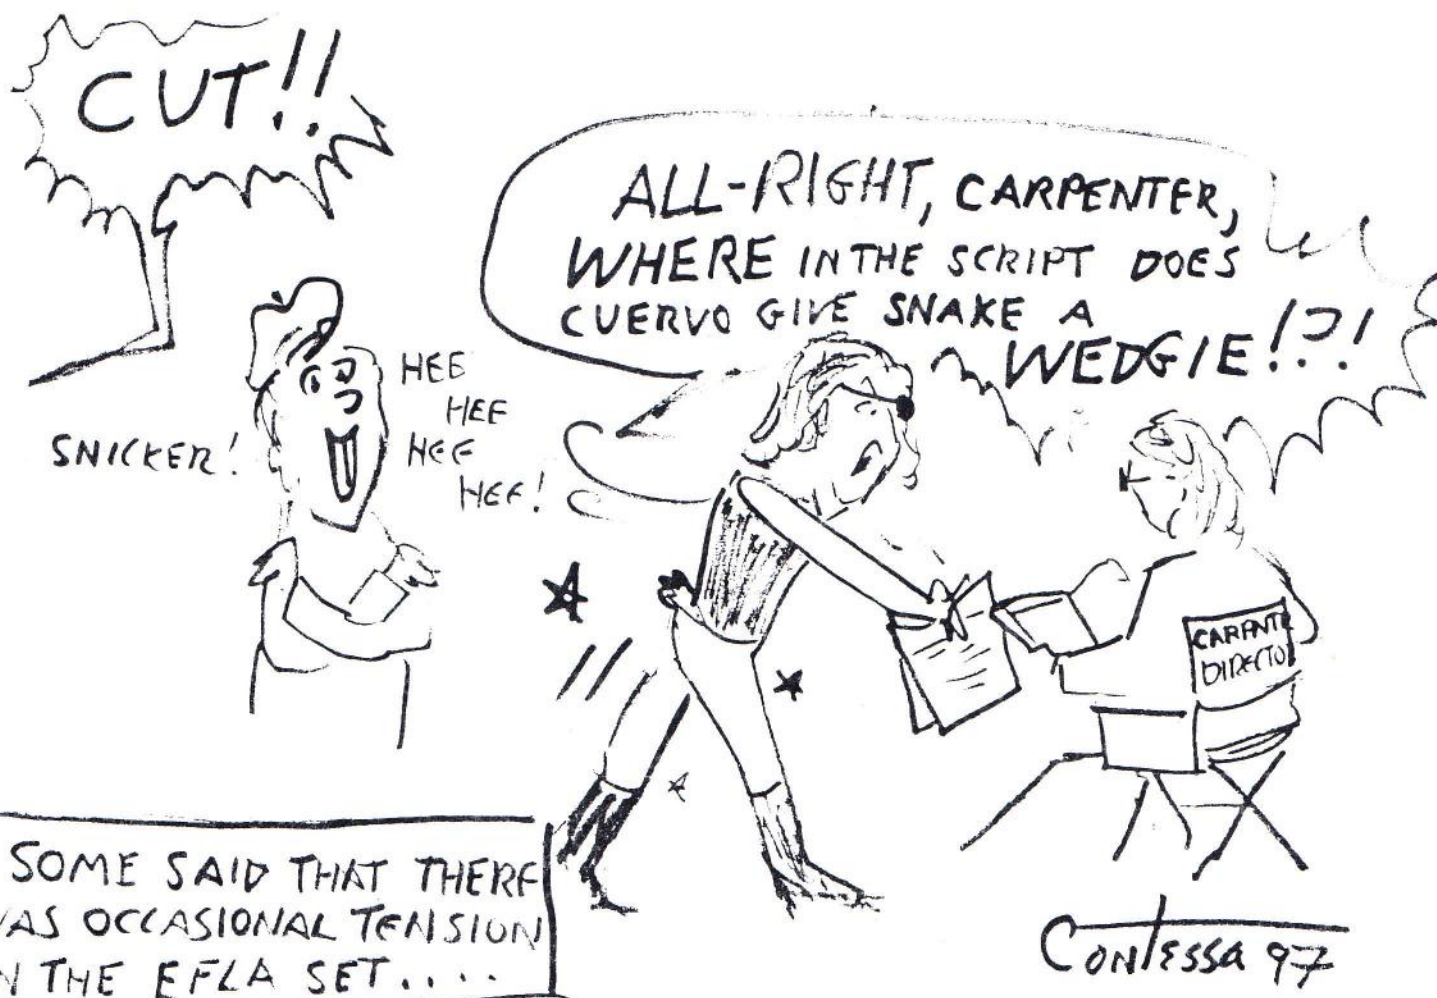 CUT!!
ALL-RIGHT, CARPENTER,
WHERE IN THE SCRIPT DOES
CUERVO GIVE SNAKE A
WEDGIE!?!
HEE
HEE
HEE
HEE!
SNICKER!
CARPNTE
DIRECTO
SOME SAID THAT THERE
AS OCCASIONAL TENSION
N THE EFLA SET....
Contessa 97